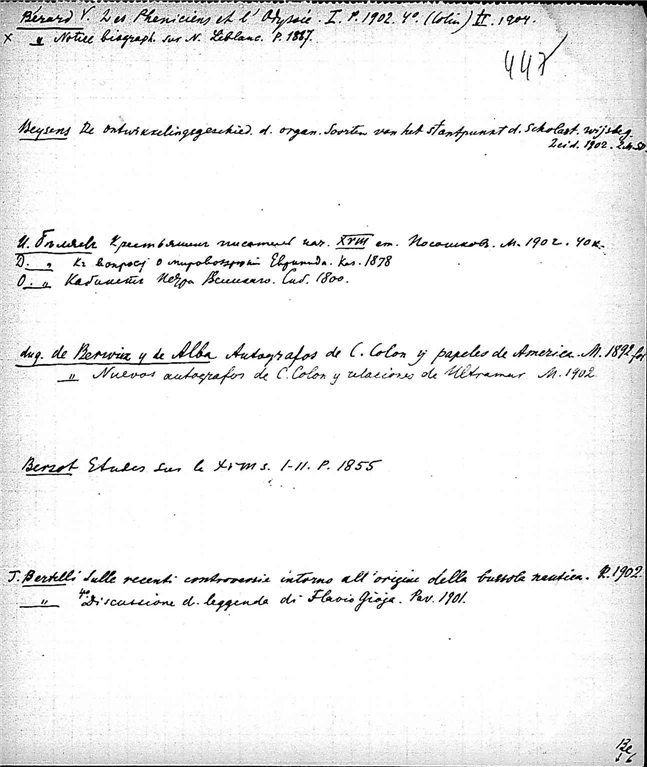 Bérard V. Les Pheniciens et l'Odyssée. I. P. 1902. 4º. (Colin) II. 1904.
× " Notice biograph. sur N. Leblanc. P. 1887.
447
Beysens De ontwikkelingsgeschied. d. organ. soorten van het standpunkt d. Scholast. wijsbeg.
Leid. 1902.
И. Бѣляевъ Крестьянинъ писатель нач. XVIII ст. Посошковъ. М. 1902. 40 к.
Д. " Къ вопросу о мировоззрѣнiи Еврипида. Каз. 1878
О. " Кабинетъ Петра Великаго. Спб. 1800.
duq. de Berwick y de Alba Autografos de C. Colon y papeles de America. M. 1892 fol
" Nuevos autografos de C. Colon y relaciones de Ultramar M. 1902
Bersot Etudes sur le XVIII s. I-II. P. 1855
T. Bertelli Sulle recenti controversie intorno all'origine della bussola nautica. R. 1902.
" 4º Discussione d. leggenda di Flavio Gioja. Pav. 1901.
Be